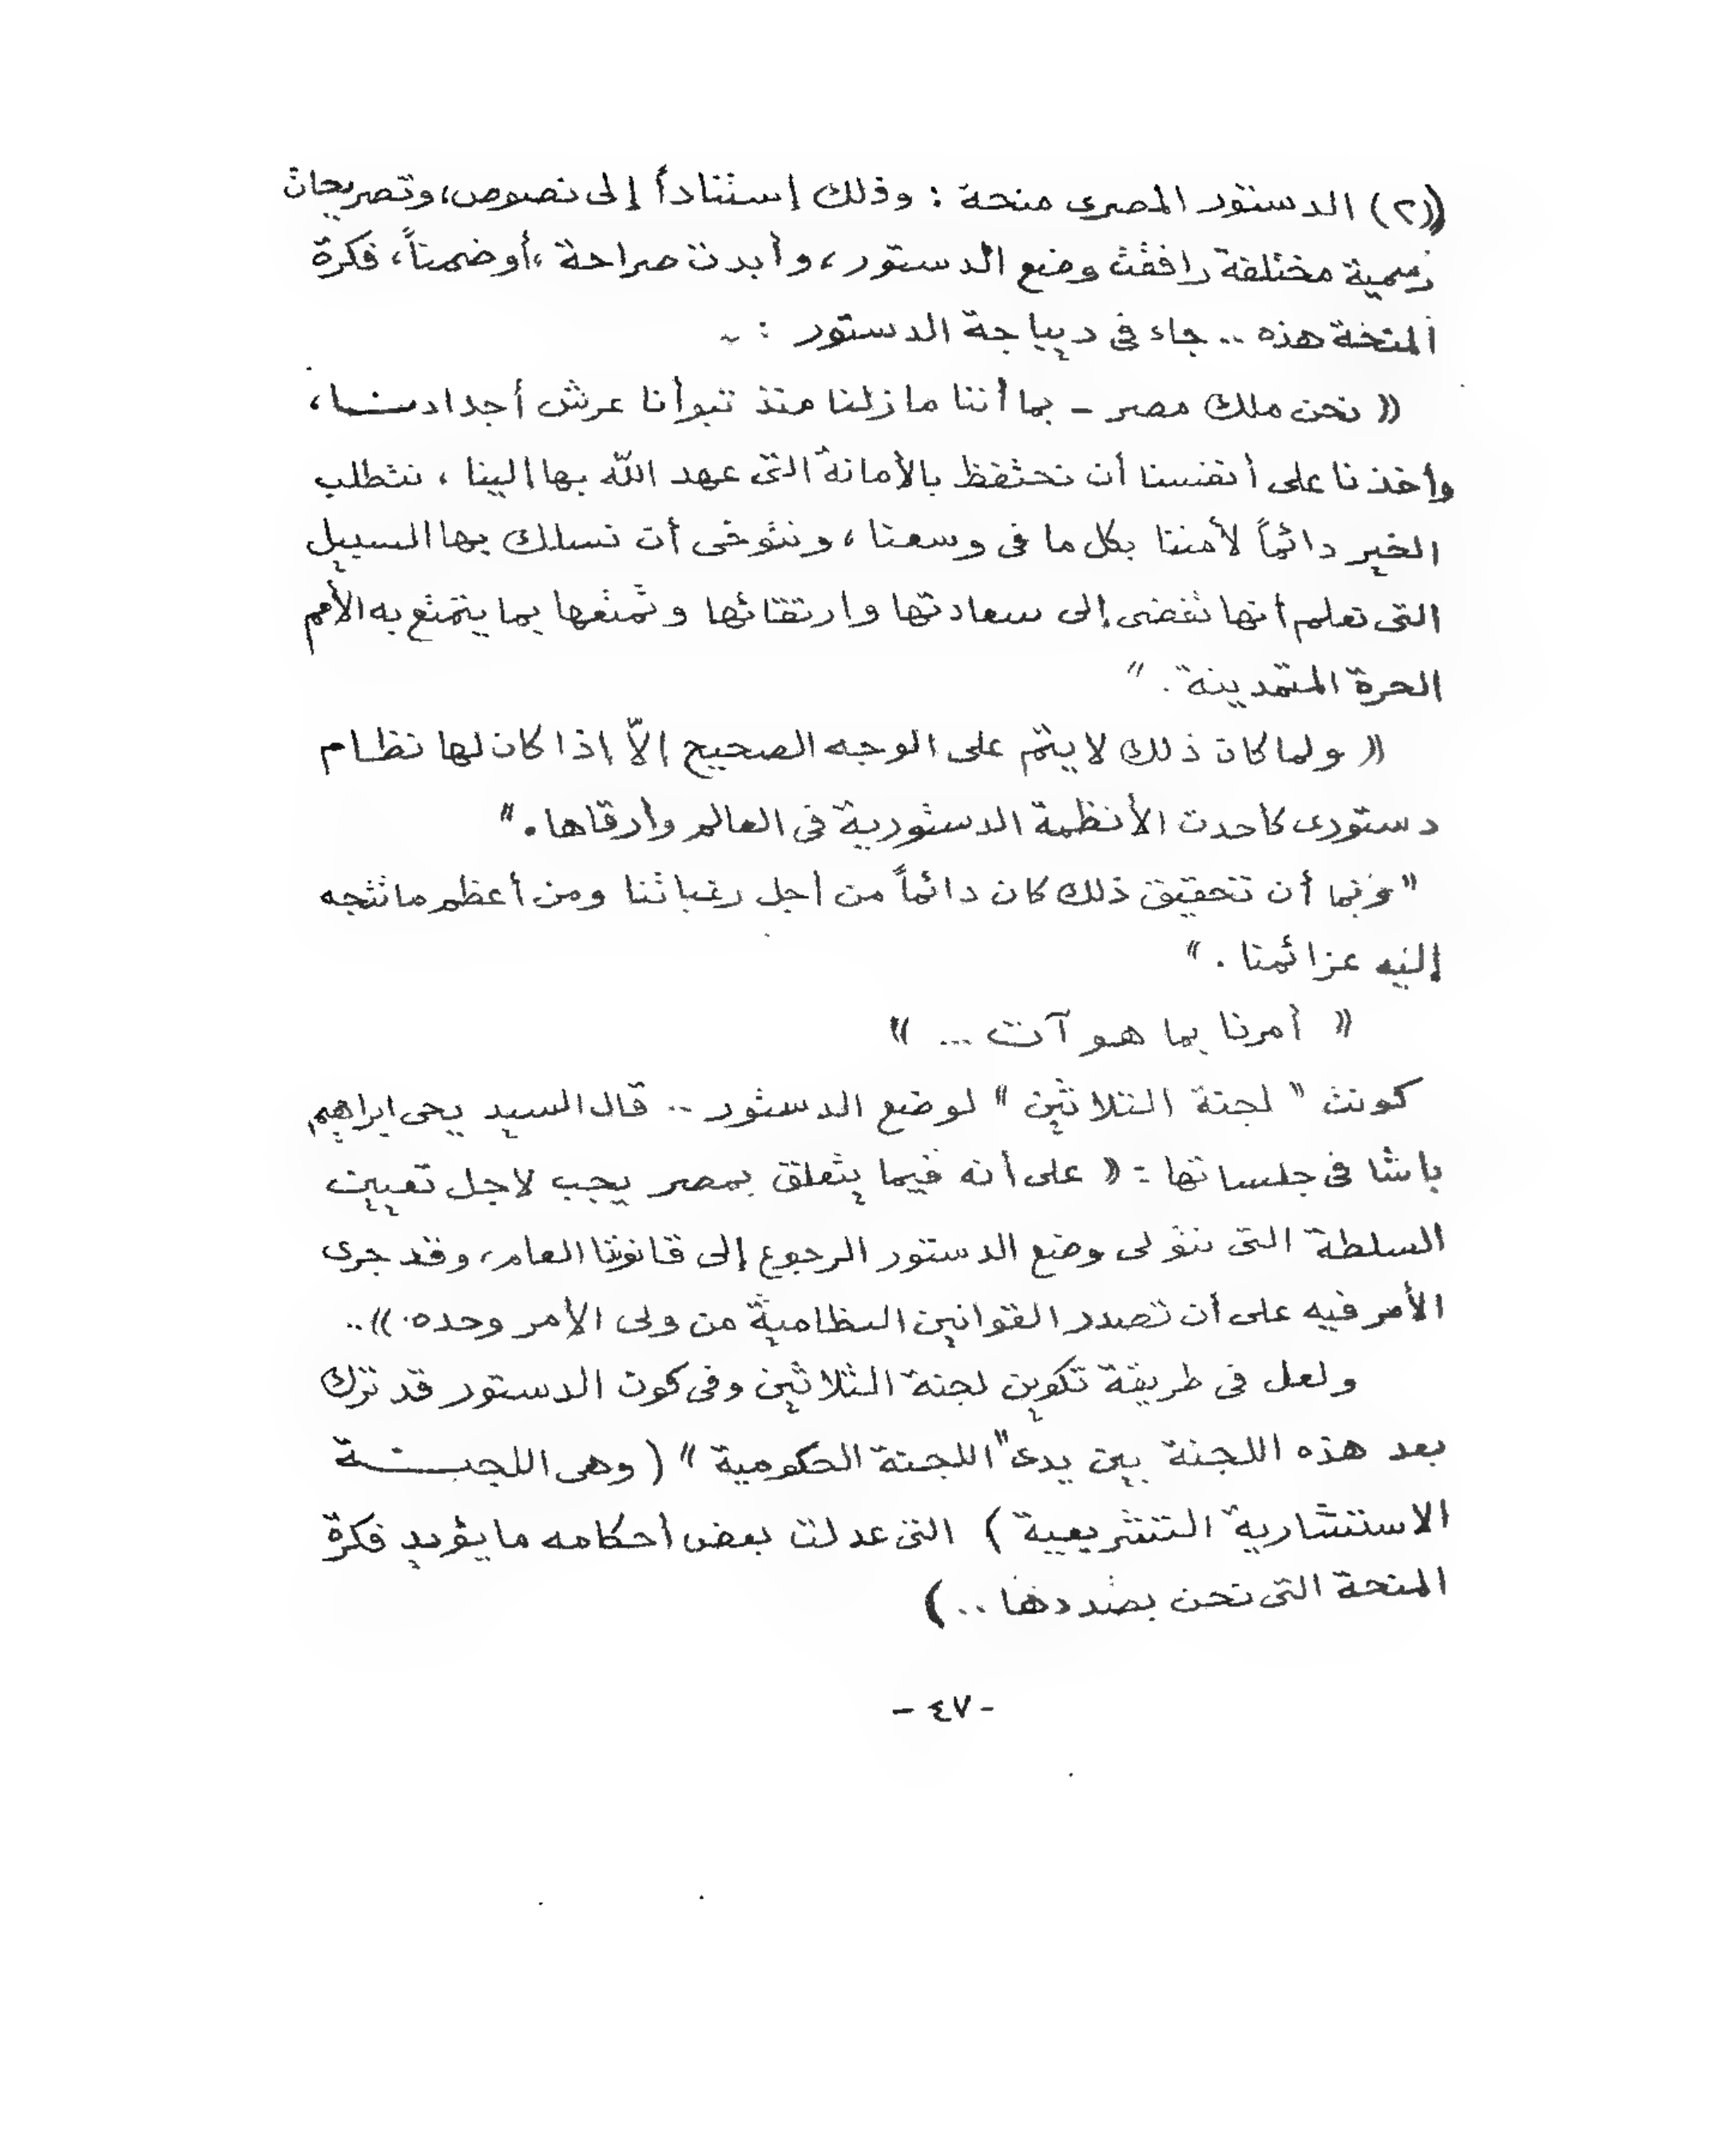 ((٢) الدستور المصرى منحة : وذلك إستناداً إلى نصوص، وتصريحات
رسمية مختلفة رافقت وضع الدستور، وأبدت صراحة ،أو ضمناً، فكرة
المنحة هذه .. جاء فى ديباجة الدستور : -
« نحن ملك مصر - بما أننا ما زلنا منذ تبوأنا عرش أجدادنا،
وأخذنا على أنفسنا أن نحتفظ بالأمانة التى عهد الله بها إلينا ، نتطلب
الخير دائماً لأمتنا بكل ما فى وسعنا ، ونتوخى أن نسلك بها السبيل
التى نعلم أنها تفضى إلى سعادتها وارتقائها وتمتعها بما يتمتع به الأمم
الحرة المتمدينة . "
« ولما كان ذلك لا يتم على الوجه الصحيح إلاّ إذا كان لها نظام
دستورى كاحدث الأنظمة الدستورية فى العالم وأرقاها . "
" وبما أن تحقيق ذلك كان دائماً من أجل رغباتنا ومن أعظم ما تتجه
إليه عزائمنا . "
« أمرنا بما هو آت ... »
كونت " لجنة الثلاثين " لوضع الدستور .. قال السيد يحى ابراهيم
باشا فى جلساتها : « على أنه فيما يتعلق بمصر يجب لاجل تعيين
السلطة التى تتولى وضع الدستور الرجوع إلى قانوننا العام، وقد جرى
الأمر فيه على أن تصدر القوانين النظامية من ولى الأمر وحده. » ..
ولعل فى طريقة تكوين لجنة الثلاثين وفى كون الدستور قد ترك
بعد هذه اللجنة بين يدى "اللجنة الحكومية " ( وهى اللجنة
الاستشارية التشريعية ) التى عدلت بعض أحكامه ما يؤيد فكرة
المنحة التى نحن بصددها .. )
- ٤٧ -